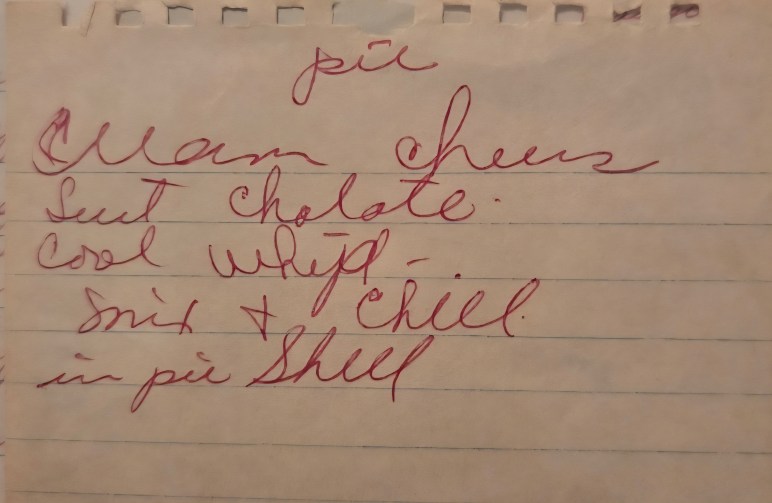 pie
Cream cheese
Sweet Cholate.
Cool Whip -
Mix + Chill.
in pie Shell